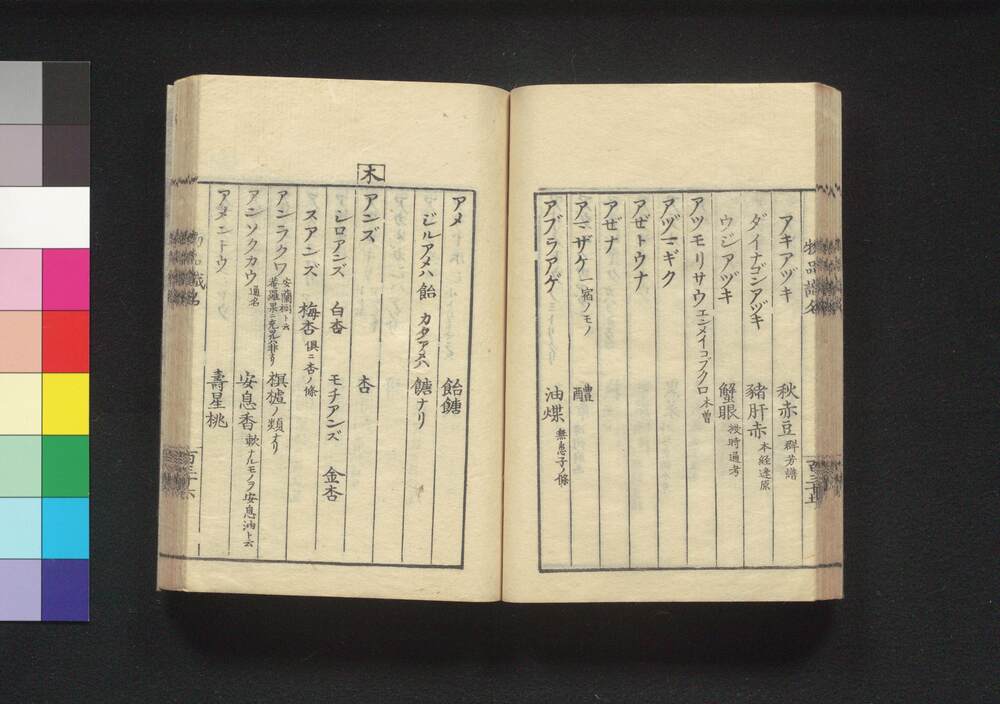 物品識名
アキアヅキ 秋赤豆 群芳譜
ダイナゴンアヅキ 豬肝赤 本経逢原
ウジアヅキ 蟹眼 授時通考
アツモリサウ エンメイコブクロ 木曽
アヅマギク
アゼトウナ
アゼナ
アマザケ 一宿ノモノ 醴
アブラアゲ 油煠 無患子ノ條
アメ 飴餹
ジルアメハ 飴 カタアメハ 餹ナリ
木
アンズ 杏
シロアンズ 白杏 モチアンズ 金杏
スアンズ 梅杏 倶ニ杏ノ條
アンラクワ 榠樝ノ類ナリ
アンソクカウ 通名 安息香 軟ナルモノヲ安息油ト云
アメントウ 壽星桃
物品識名